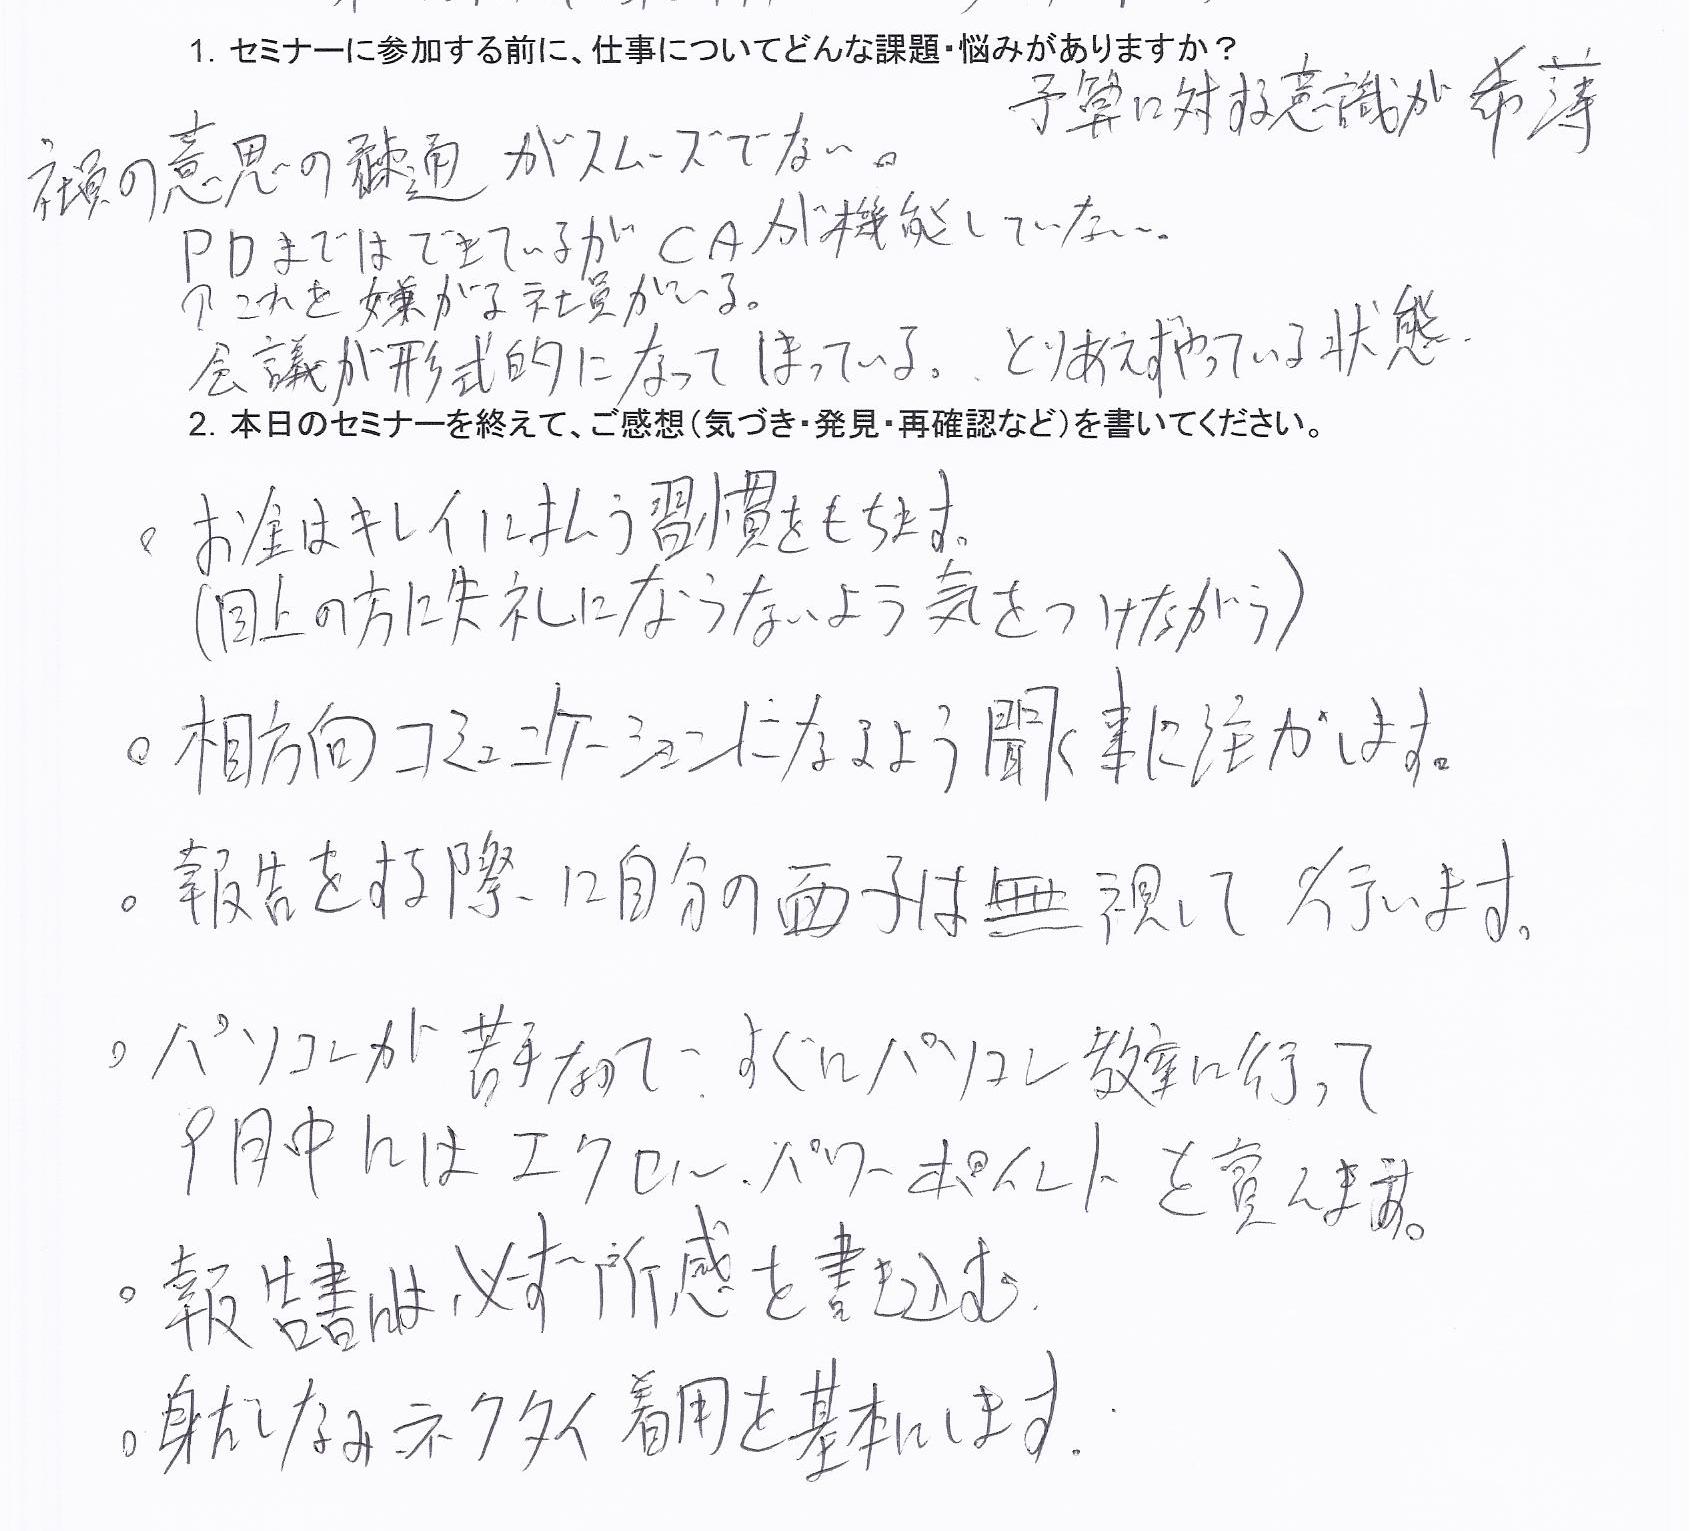 1. セミナーに参加する前に、仕事についてどんな課題・悩みがありますか？
予算に対する意識が希薄
社員の意思の疎通がスムーズでない。
PDまではできているがCAが機能していない。
↑これを嫌がる社員がいる。
会議が形式的になってしまっている。とりあえずやっている状態.
2. 本日のセミナーを終えて、ご感想（気づき・発見・再確認など）を書いてください。
。お金はキレイに払う習慣をもちます。
（目上の方に失礼にならないよう気をつけながら）
。相方向コミュニケーションになるよう聞く事に注力します。
。報告をする際に自分の面子は無視して行います。
。パソコンが苦手なので、すぐにパソコン教室に行って
9月中にはエクセル.パワーポイントを覚えます。
。報告書には必ず所感を書き込む.
。身だしなみネクタイ着用を基本にします.